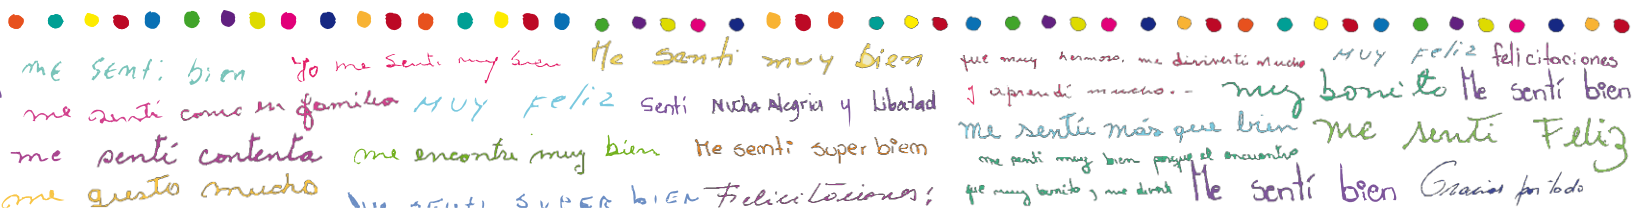 me sentí bien
Yo me sentí muy bien
Me sentí muy bien
fue muy hermoso. me diviertí mucho
y aprendí mucho...
MUY FELIZ
felicitaciones
me sentí como en familia
MUY FELIZ
Sentí Mucha Alegria y Libertad
muy bonito
Me sentí bien
me sentí contenta
me encontre muy bien
Me sentí super bien
me sentí más que bien
me sentí Feliz
me sentí muy bien porque el encuentro
fue muy bonito y me divertí
me gusto mucho
Me SENTI SUPER bIEN
Felicitaciones!
Me sentí bien
Gracias por todo